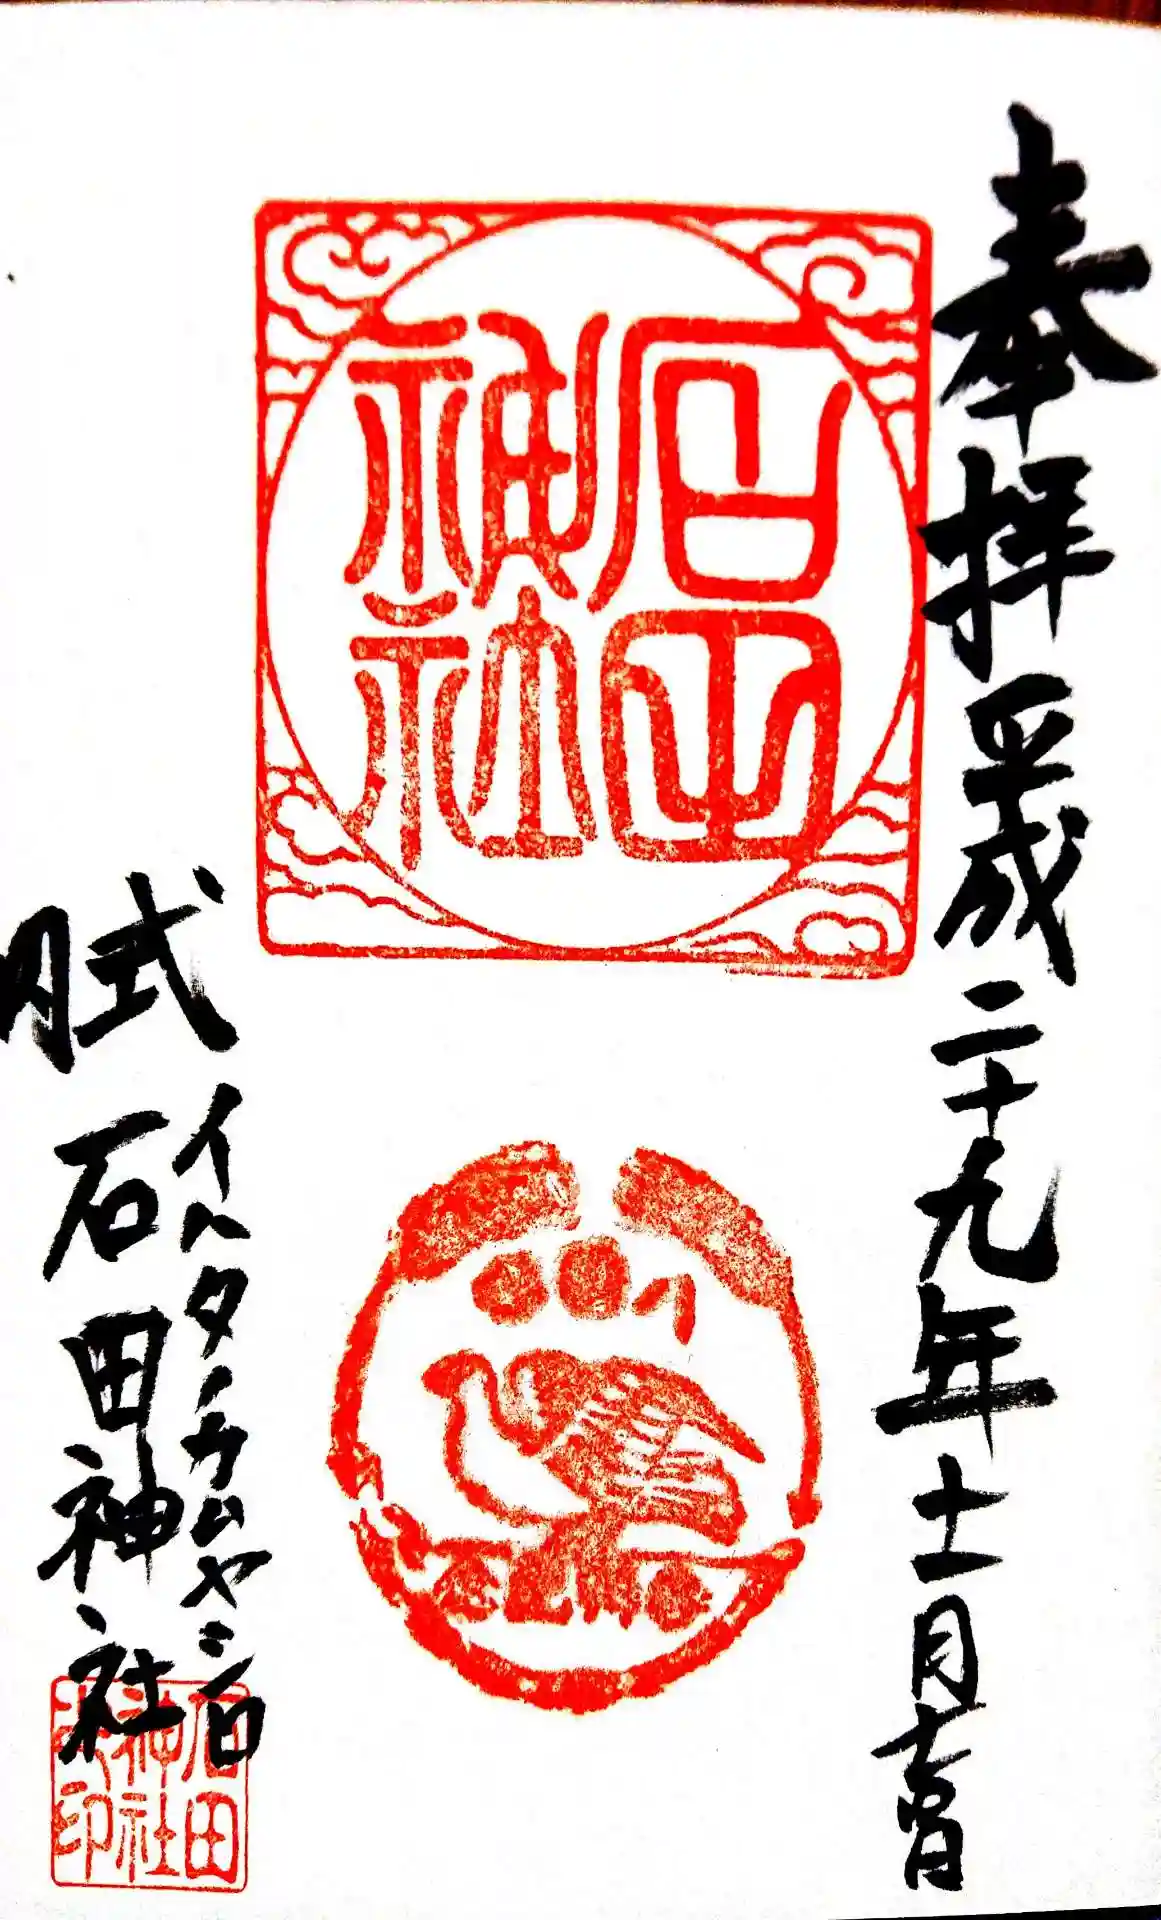 奉拝 平成二十九年十一月
神社
式内
イハタノカムヤシロ
石田神社
石田
神社
之印